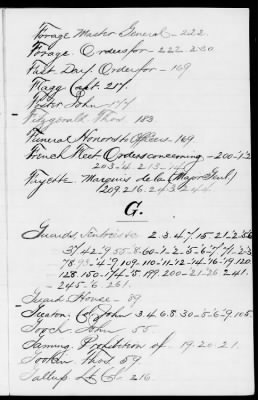 Forage Master General - 222.
Forage. Orders for - 222. 230
Fast Day. Order for - 169
Flagg Capt. 217.
John 144
Fitzgerald Thos 183.
Funeral Honors to Officers - 169.
French Fleet Orders concerning - 200-1-2
203-4. 213-14
Fayette. Marquis de la (Major Genl)
209. 216. 243. 244.
G.
Guards 2. 3. 4. 7. 15. 21-2. 
37. 42-9. 55-8. 60-1-2-5-6-7. 71-2-3
78. 93-4-9. 109. 110-11-12-14-16-19. 120.
128. 150. 174-8. 199. 200-21-26. 241.
-245-6. 261.
Guard House - 39
Col. John 3. 4. 6. 8. 30-5-6-9. 105.
John 55.
Gaming. Prohibition of. 19. 20. 21.
Thos. 59
Gallup Lt Col. 216.